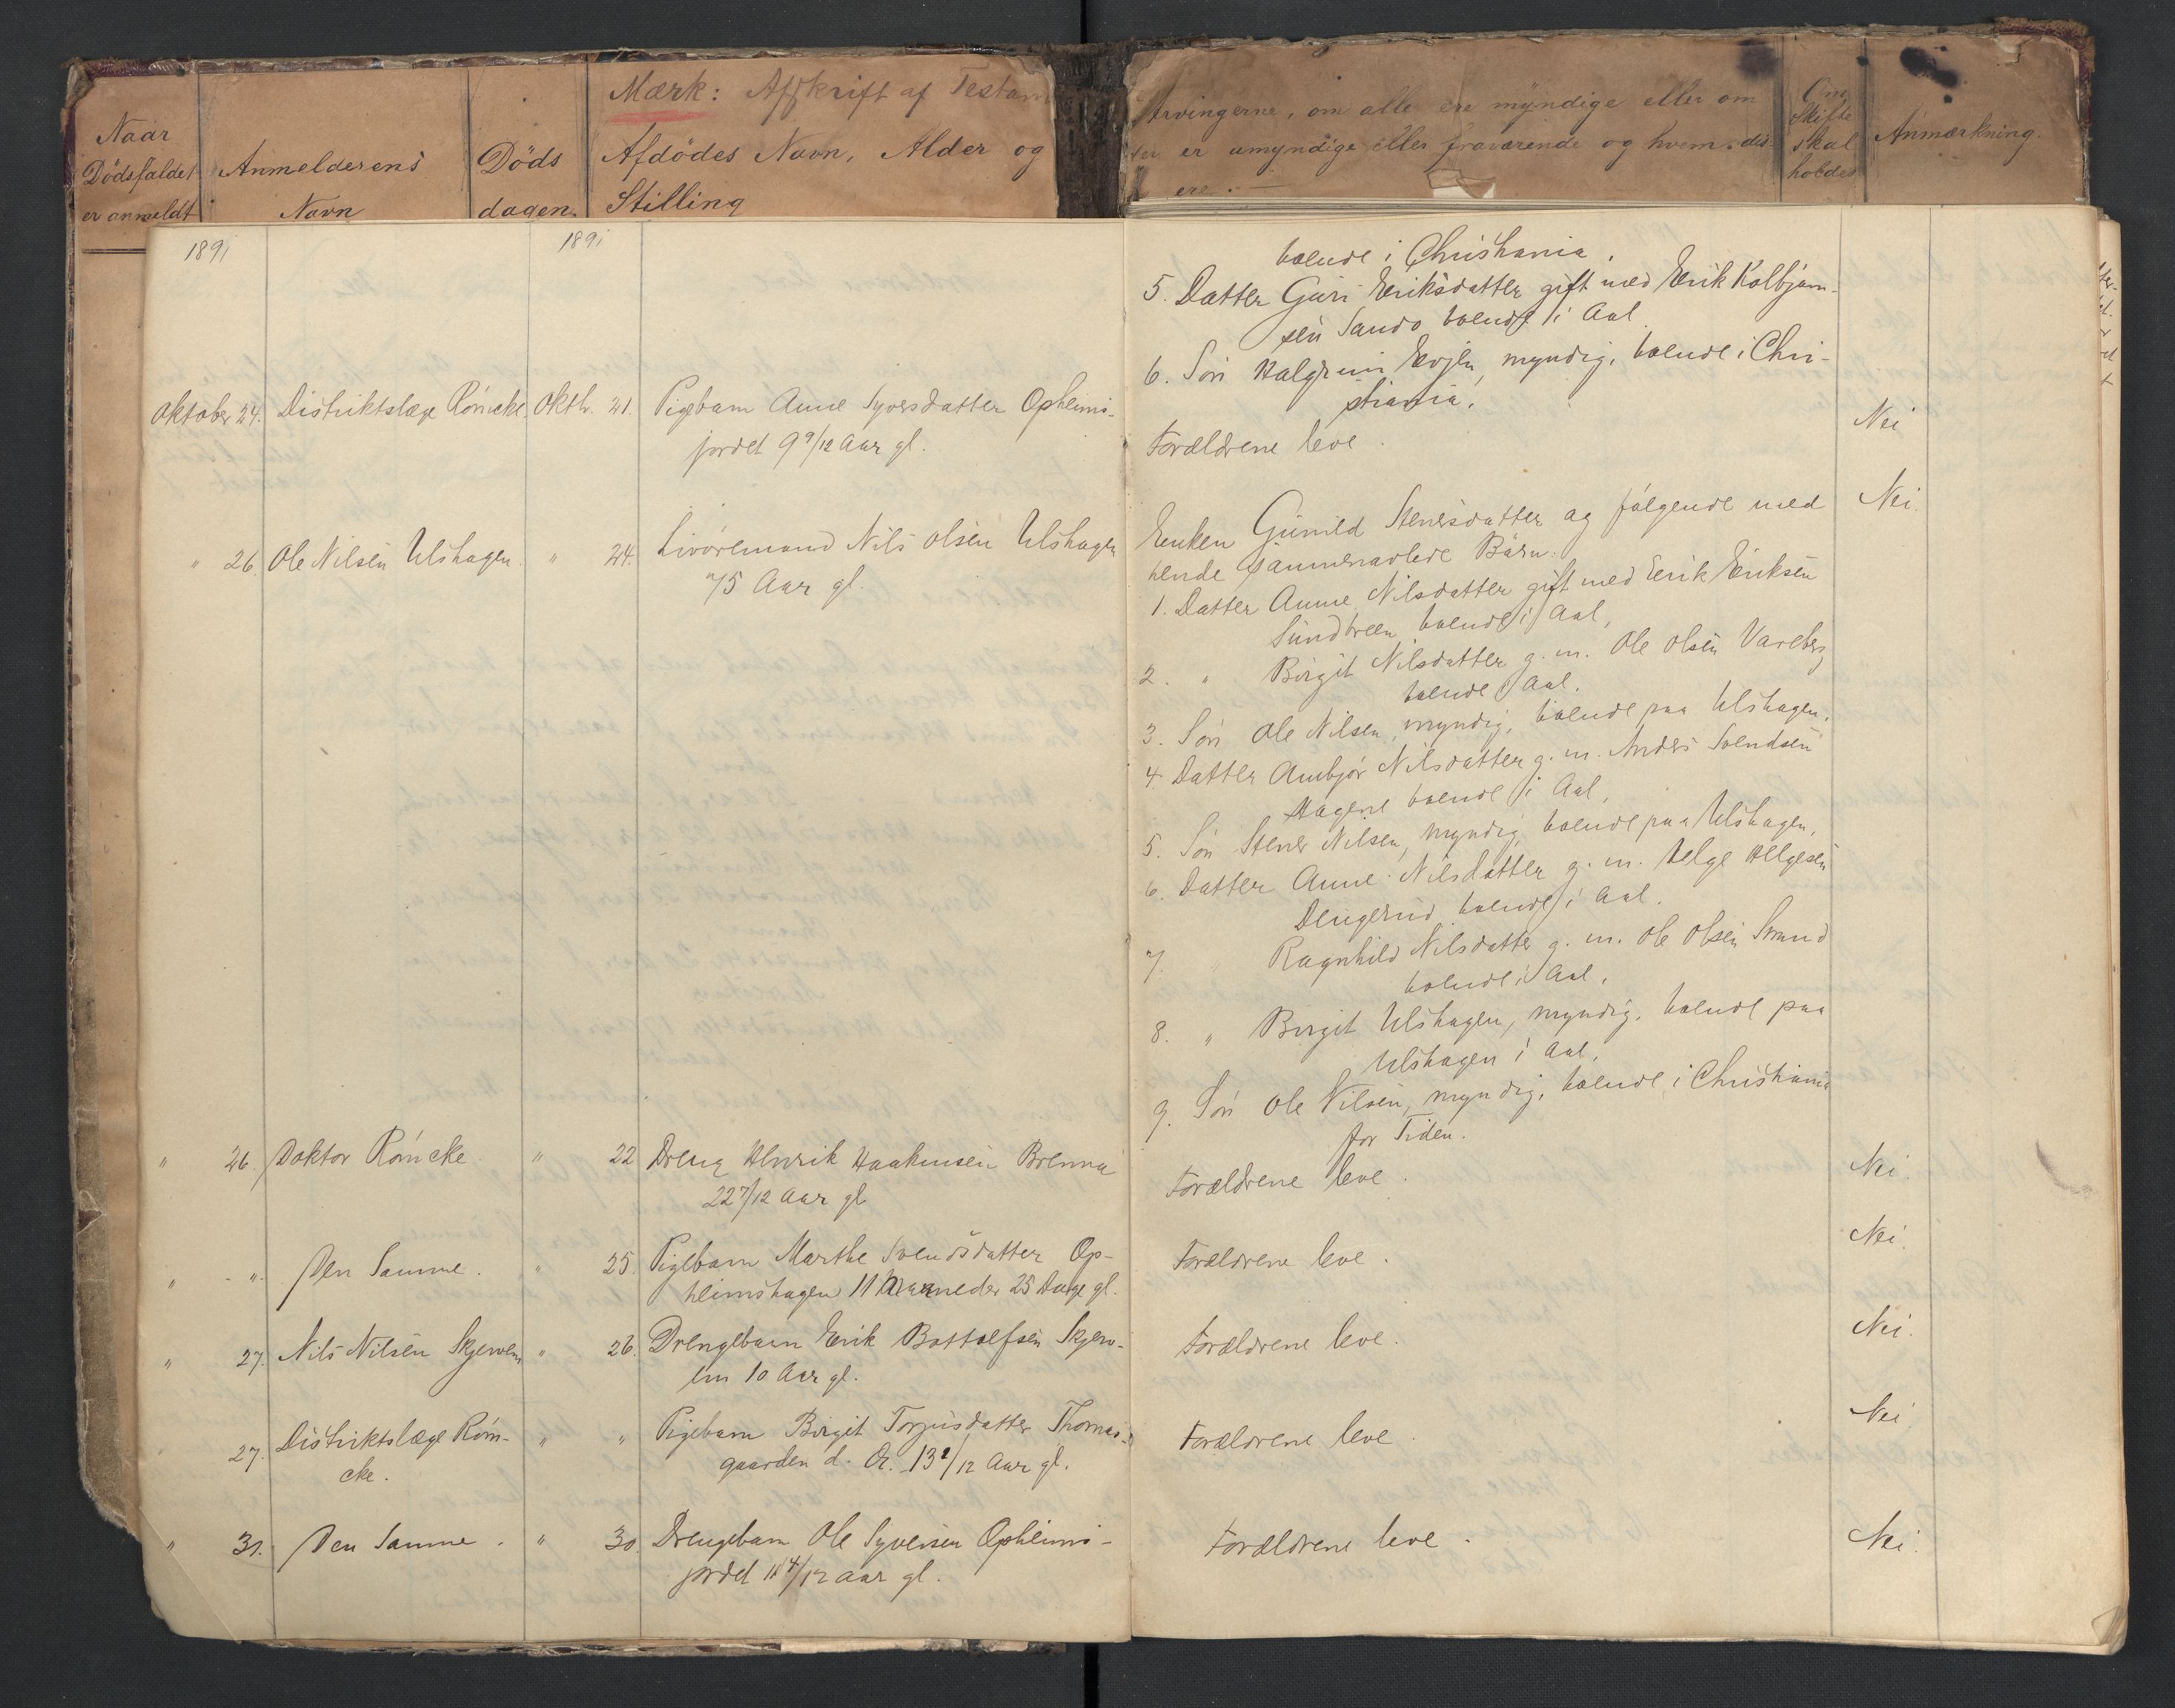 Mærk: Afskrift af Testam
Naar
Dödsfaldet
er anmeldt
Anmelderens
Navn
Döds
dagen.
Afdödes Navn, Alder og
Stilling
Arvingerne, om alle ere myndige eller om
er umyndige eller fraværende og hvem dis-
ere.
Om
Skifte
skal
holdes
Anmærkning.
1891
1891
boende i Christiania.
5. Datter Guri Eriksdatter gift med Erik Kolbjørn-
sen Sando boende i Aal.
6. Søn Halgrim Evjen, myndig, boende i Chri-
stiania.
Oktober 24. Distriktslæge Römcke Oktb. 21. Pigebarn Anne Syversdatter Opheims-
jordet 9 9/12 Aar gl.
Forældrene leve.
Nei
" 26. Ole Nilsen Ulshagen. " 24. Livöremand Nils Olsen Ulshagen
75 Aar gl.
Enken Gunild Stenersdatter og følgende med
hende sammenavlede Börn.
Nei.
1. Datter Anne Nilsdatter gift med Erik Eriksen
Sundbreen boende i Aal,
2. " Birgit Nilsdatter g. m. Ole Olsen Vareberg
boende i Aal.
3. Søn Ole Nilsen, myndig, boende paa Ulshagen.
4. Datter Ambjør Nilsdatter g. m. Anders Svendsen
Hagene boende i Aal,
5. Søn Stener Nilsen, myndig, boende paa Ulshagen,
6. Datter Anne Nilsdatter g. m. Helge Helgesen
Dengerud boende i Aal.
7. " Ragnhild Nilsdatter g. m. Ole Olsen Strand
boende i Aal.
8. " Birgit Ulshagen, myndig, boende paa
Ulshagen i Aal.
9. Søn Ole Nilsen, myndig, boende i Christiania
for Tiden.
" 26. Doktor Römcke. " 22 Dreng Henrik Haakensen Brenna
22 7/12 Aar gl
Forældrene leve.
Nei.
" " Den Samme. " 25. Pigebarn Marthe Svendsdatter Op-
heimshagen 11 Maaneder 25 Dage gl.
Forældrene leve.
Nei.
" 27. Nils Nilsen Skjerven " 26. Drengebarn Erik Bottolfsen Skjerv-
en 10 Aar gl.
Forældrene leve.
Nei.
27. Distriktslæge Röm-
cke.
" " Pigebarn Birgit Torgusdatter Thomas-
gaarden d. Æ. 13 2/12 Aar gl.
Forældrene leve.
Nei.
" 31. Den Samme. " 30. Drengebarn Ole Syversen Opheims-
jordet 14 4/12 Aar gl.
Forældrene leve.
Nei.